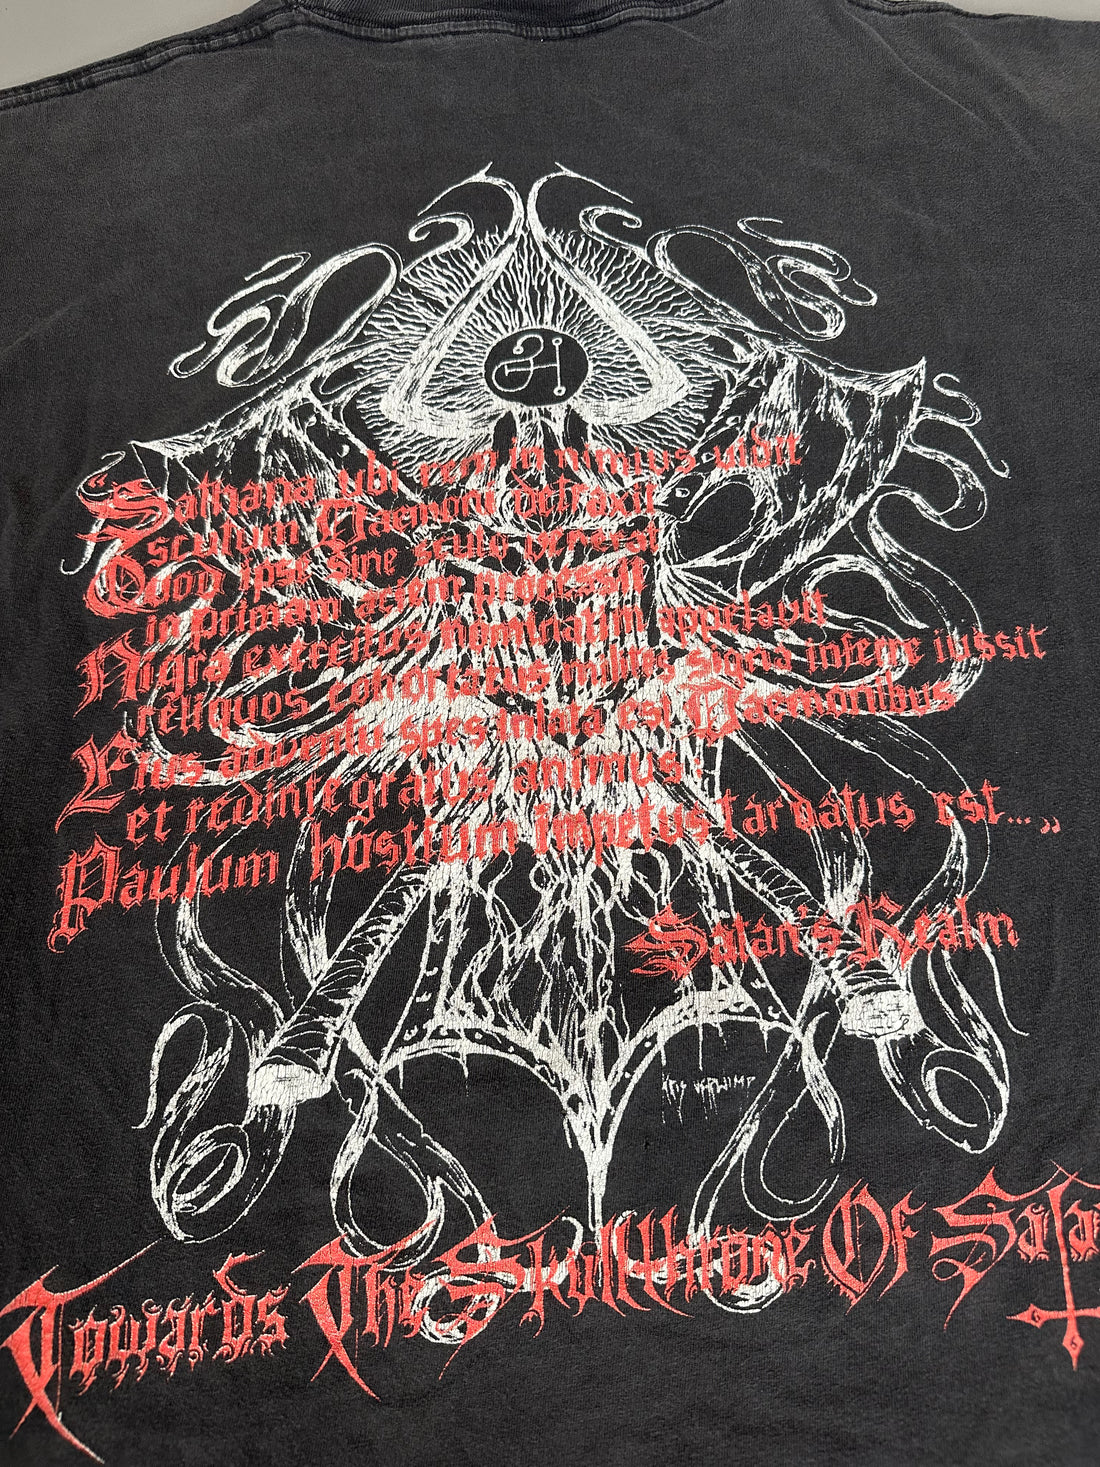 “Sathana ubi rem in nimius vidit
Esculum Daemoni detraxit
Quod ipse sine sculo venerat
in primam aciem processit
Nigra exercitus nominatim appelavit
reliquos cohortatus milites signa inferre iussit
Eius adventu spes inlata est Daemonibus
et redintegratus animus:
Paulum hostium impetus tardatus est...”
Satan's Realm
Kris Verwimp
Towards The Skullthrone Of Sata